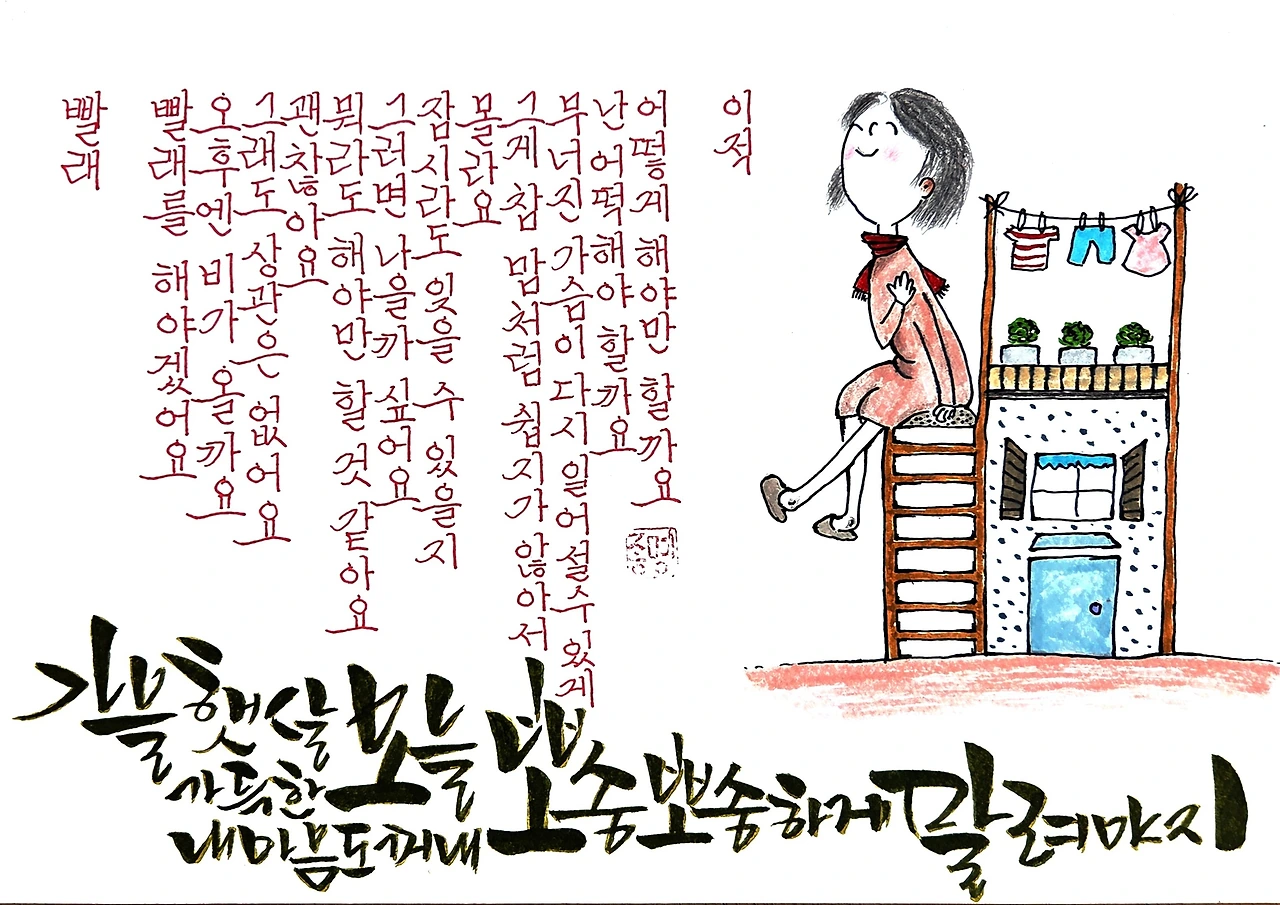 빨래
빨래를 해야겠어요
오후엔 비가 올까요
그래도 상관은 없어요
괜찮아요
뭐라도 해야만 할 것 같아요
그러면 나을까 싶어요
잠시라도 잊을 수 있을지
몰라요
그게 참 맘처럼 쉽지가 않아서
무너진 가슴이 다시 일어설수있게
난 어떡해야 할까요
어떻게 해야만 할까요
이적
가을햇살
가득한
오늘
내마음도꺼내
뽀송뽀송하게 말려야지